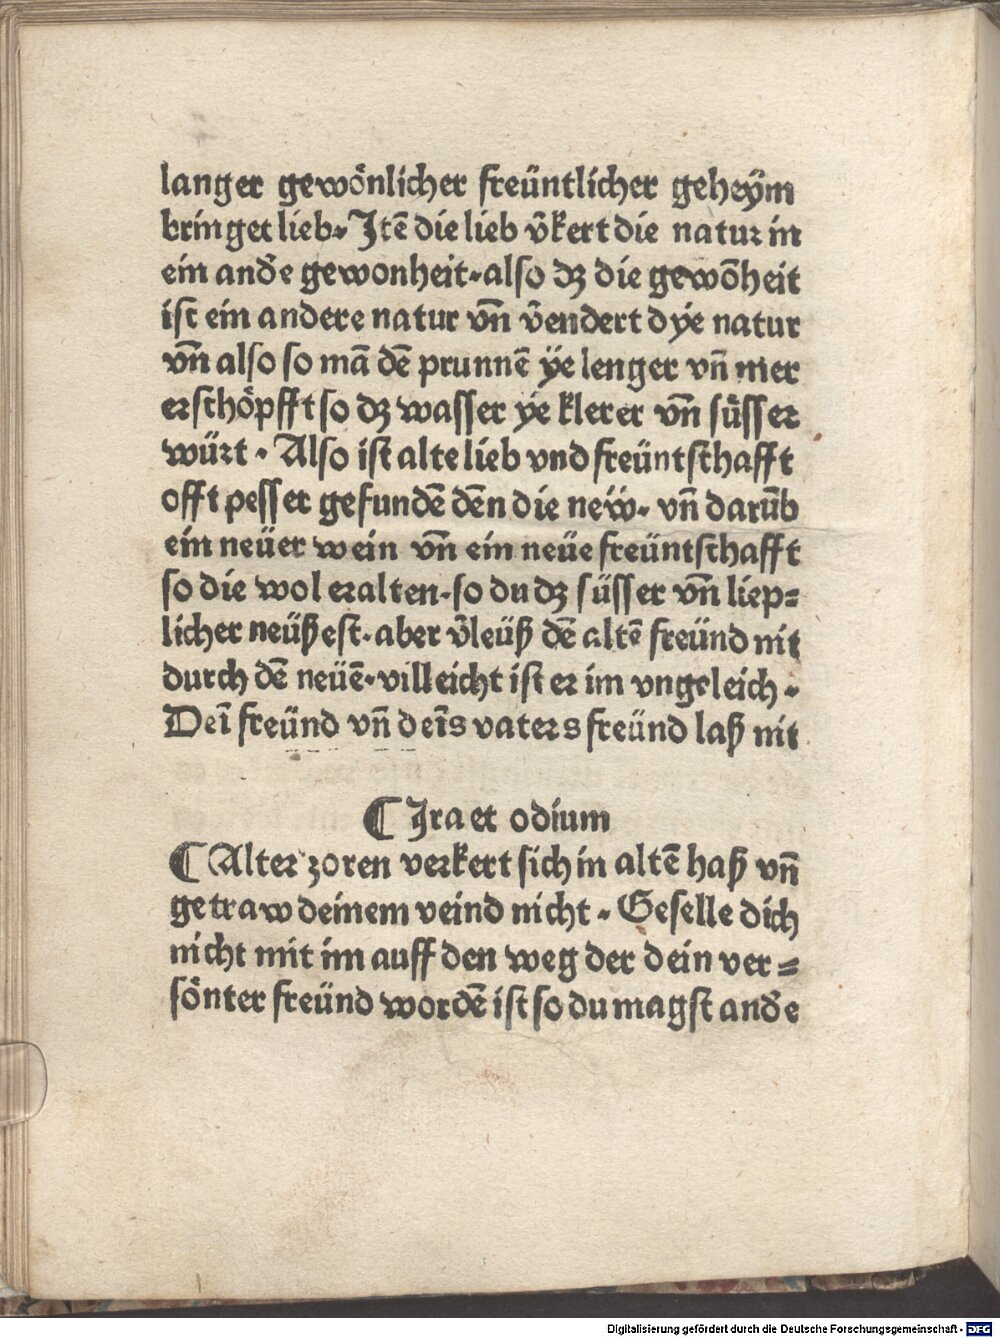 langer gewönlicher freüntlicher geheÿm
bringet lieb. Jtē die lieb v̄kert die natur in
ein and̄e gewonheit. also dz die gewōheit
ist ein andere natur vn̄ v̄endert dye natur
vn̄ also so mā dē prunnē ÿe lenger vn̄ mer
erschöpfft so dz wasser ÿe klerer vn̄ süsser
würt. Also ist alte lieb vnd freüntschafft
offt pesser gefundē dēn die neẅ. vn̄ darūb
ein neüer wein vn̄ ein neüe freüntschafft
so die wol eralten. so du dz süsser vn̄ liep=
licher neüßest. aber v̄leüß dē altē freünd nit
durch dē neüē. villeicht ist er im vngeleich.
Deī freünd vn̄ deīs vaters freünd laß nit
⸿ Jra et odium
⸿ Alter zoren verkert sich in altē haß vn̄
getraw deinem veind nicht. Geselle dich
nicht mit im auff den weg der dein ver=
sönter freünd wordē ist so du magst and̄e
Digitalisierung gefördert durch die Deutsche Forschungsgemeinschaft - DFG